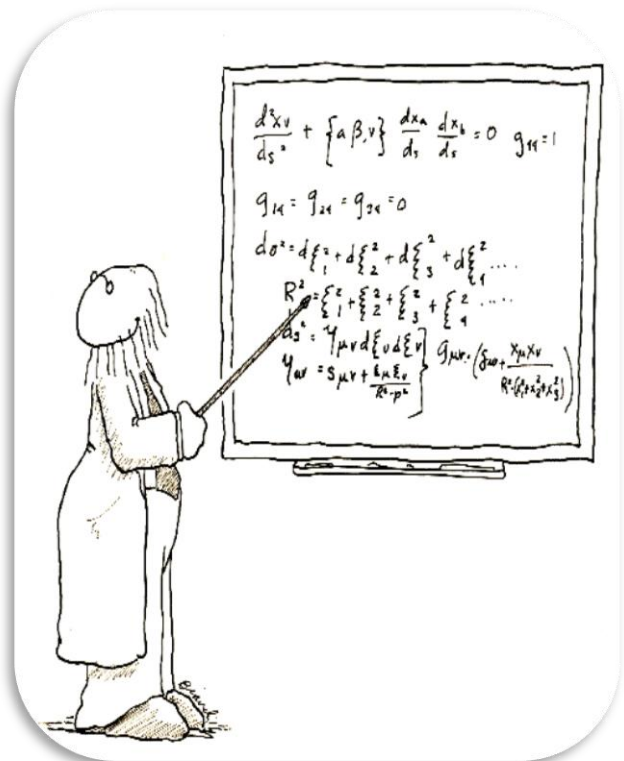 d²xν/ds² + {αβ,ν} dxa/ds dxb/ds = 0 g44 = 1
g14 = g24 = g34 = 0
dσ² = dξ1² + dξ2² + dξ3² + dξ4² ....
R² = ξ1² + ξ2² + ξ3² + ξ4² ....
ds² = γμν dξν dξν
γμν = Sμν + ξμξν/R²-p² } gμν = (δμν + xμxν/R²-(x1²+x2²+x3²))